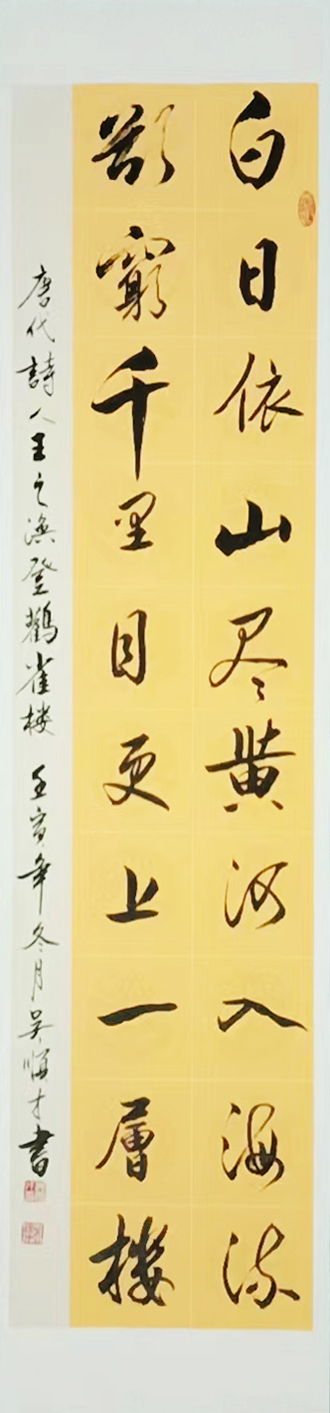 白日依山尽黄河入海流
欲穷千里目更上一層楼
唐代詩人王之渙登鸛雀楼 壬寅年冬月吴順才書